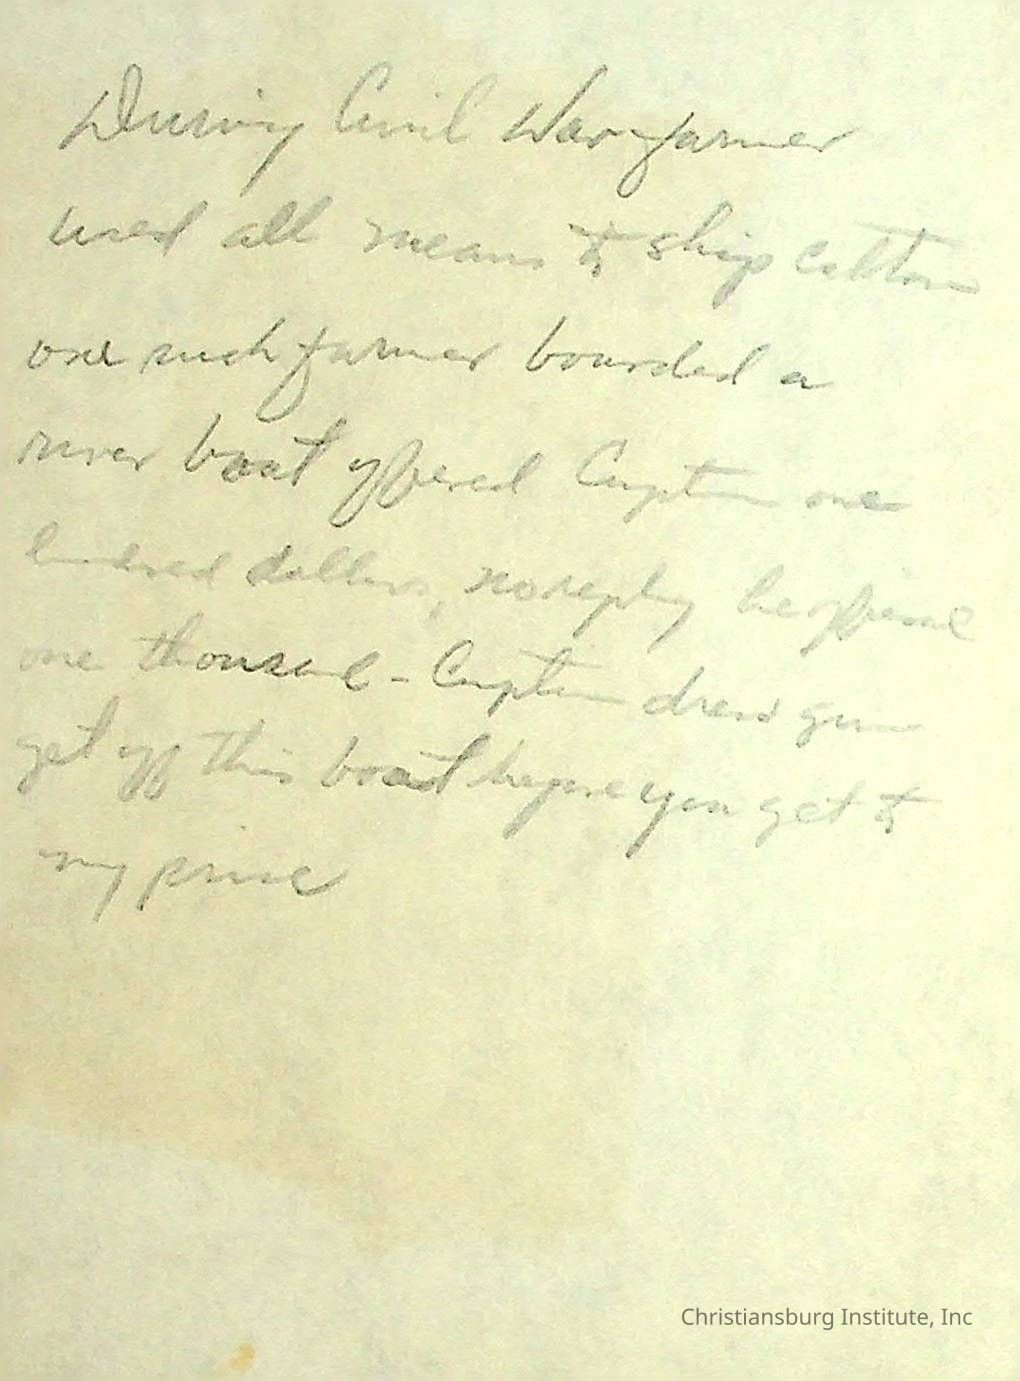 During Civil War farmer
used all means to ship cotton
one such farmer bourded a
river boat offered Captain one
hundred dollars, no reply he offered
one thousand - Captain drew gun
get off this boat before you get to
my price
Christiansburg Institute, Inc